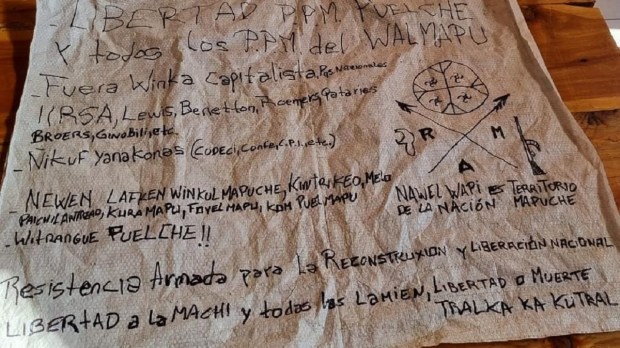 - LIBERTAD P.P.M. PUELCHE
Y todos los P.P.M. del WALMAPU
- Fuera Winka Capitalista, Pqs Nacionales
IIRSA, Lewis, Benetton, Roemers, Qataries
BROERS, Ginobili, etc.
- Nikuf Yanakonas (CODECI, Confe, C.P.I., etc,)
R M
A
- NEWEN LAFKEN WINKULMAPUCHE, KINTRIKEO, MELO
KURAMAPU, FOYELMAPU, KOM PUELMAPU
- WITRANGUE PUELCHE!!
NAWEL WAPI es TERRITORIO
DE LA NACIÓN MAPUCHE
Resistencia Armada para la RECONSTRUXION y LIBERACIÓN NACIONAL
LIBERTAD a la MACHI y todas las LAMIEN, LIBERTAD O MUERTE
TRALKA KA KUTRAL